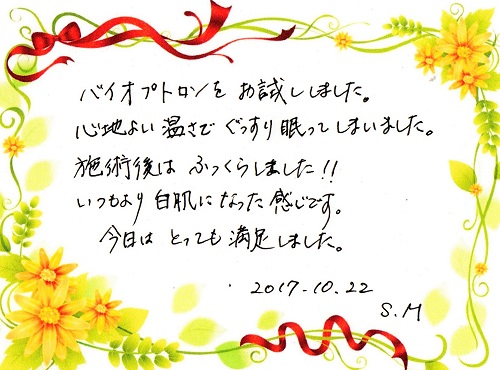 バイオプトロンを お試ししました。
心地よい温さで ぐっすり眠ってしまいました。
施術後は ふっくらしました!!
いつもより白肌になった感じです。
今日は とっても満足しました。
2017.10.22
S.M